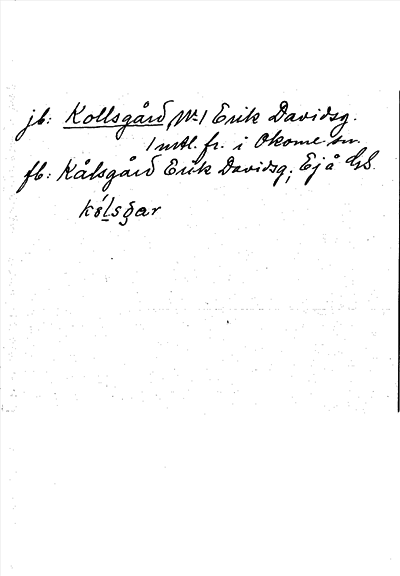 jb: Kollsgård, No 1 Erik Davidsg.
1 mtl. fr. i Okome sn.
fb: Kålsgård Erik Davidsg; Ej å GS.
kålsgar